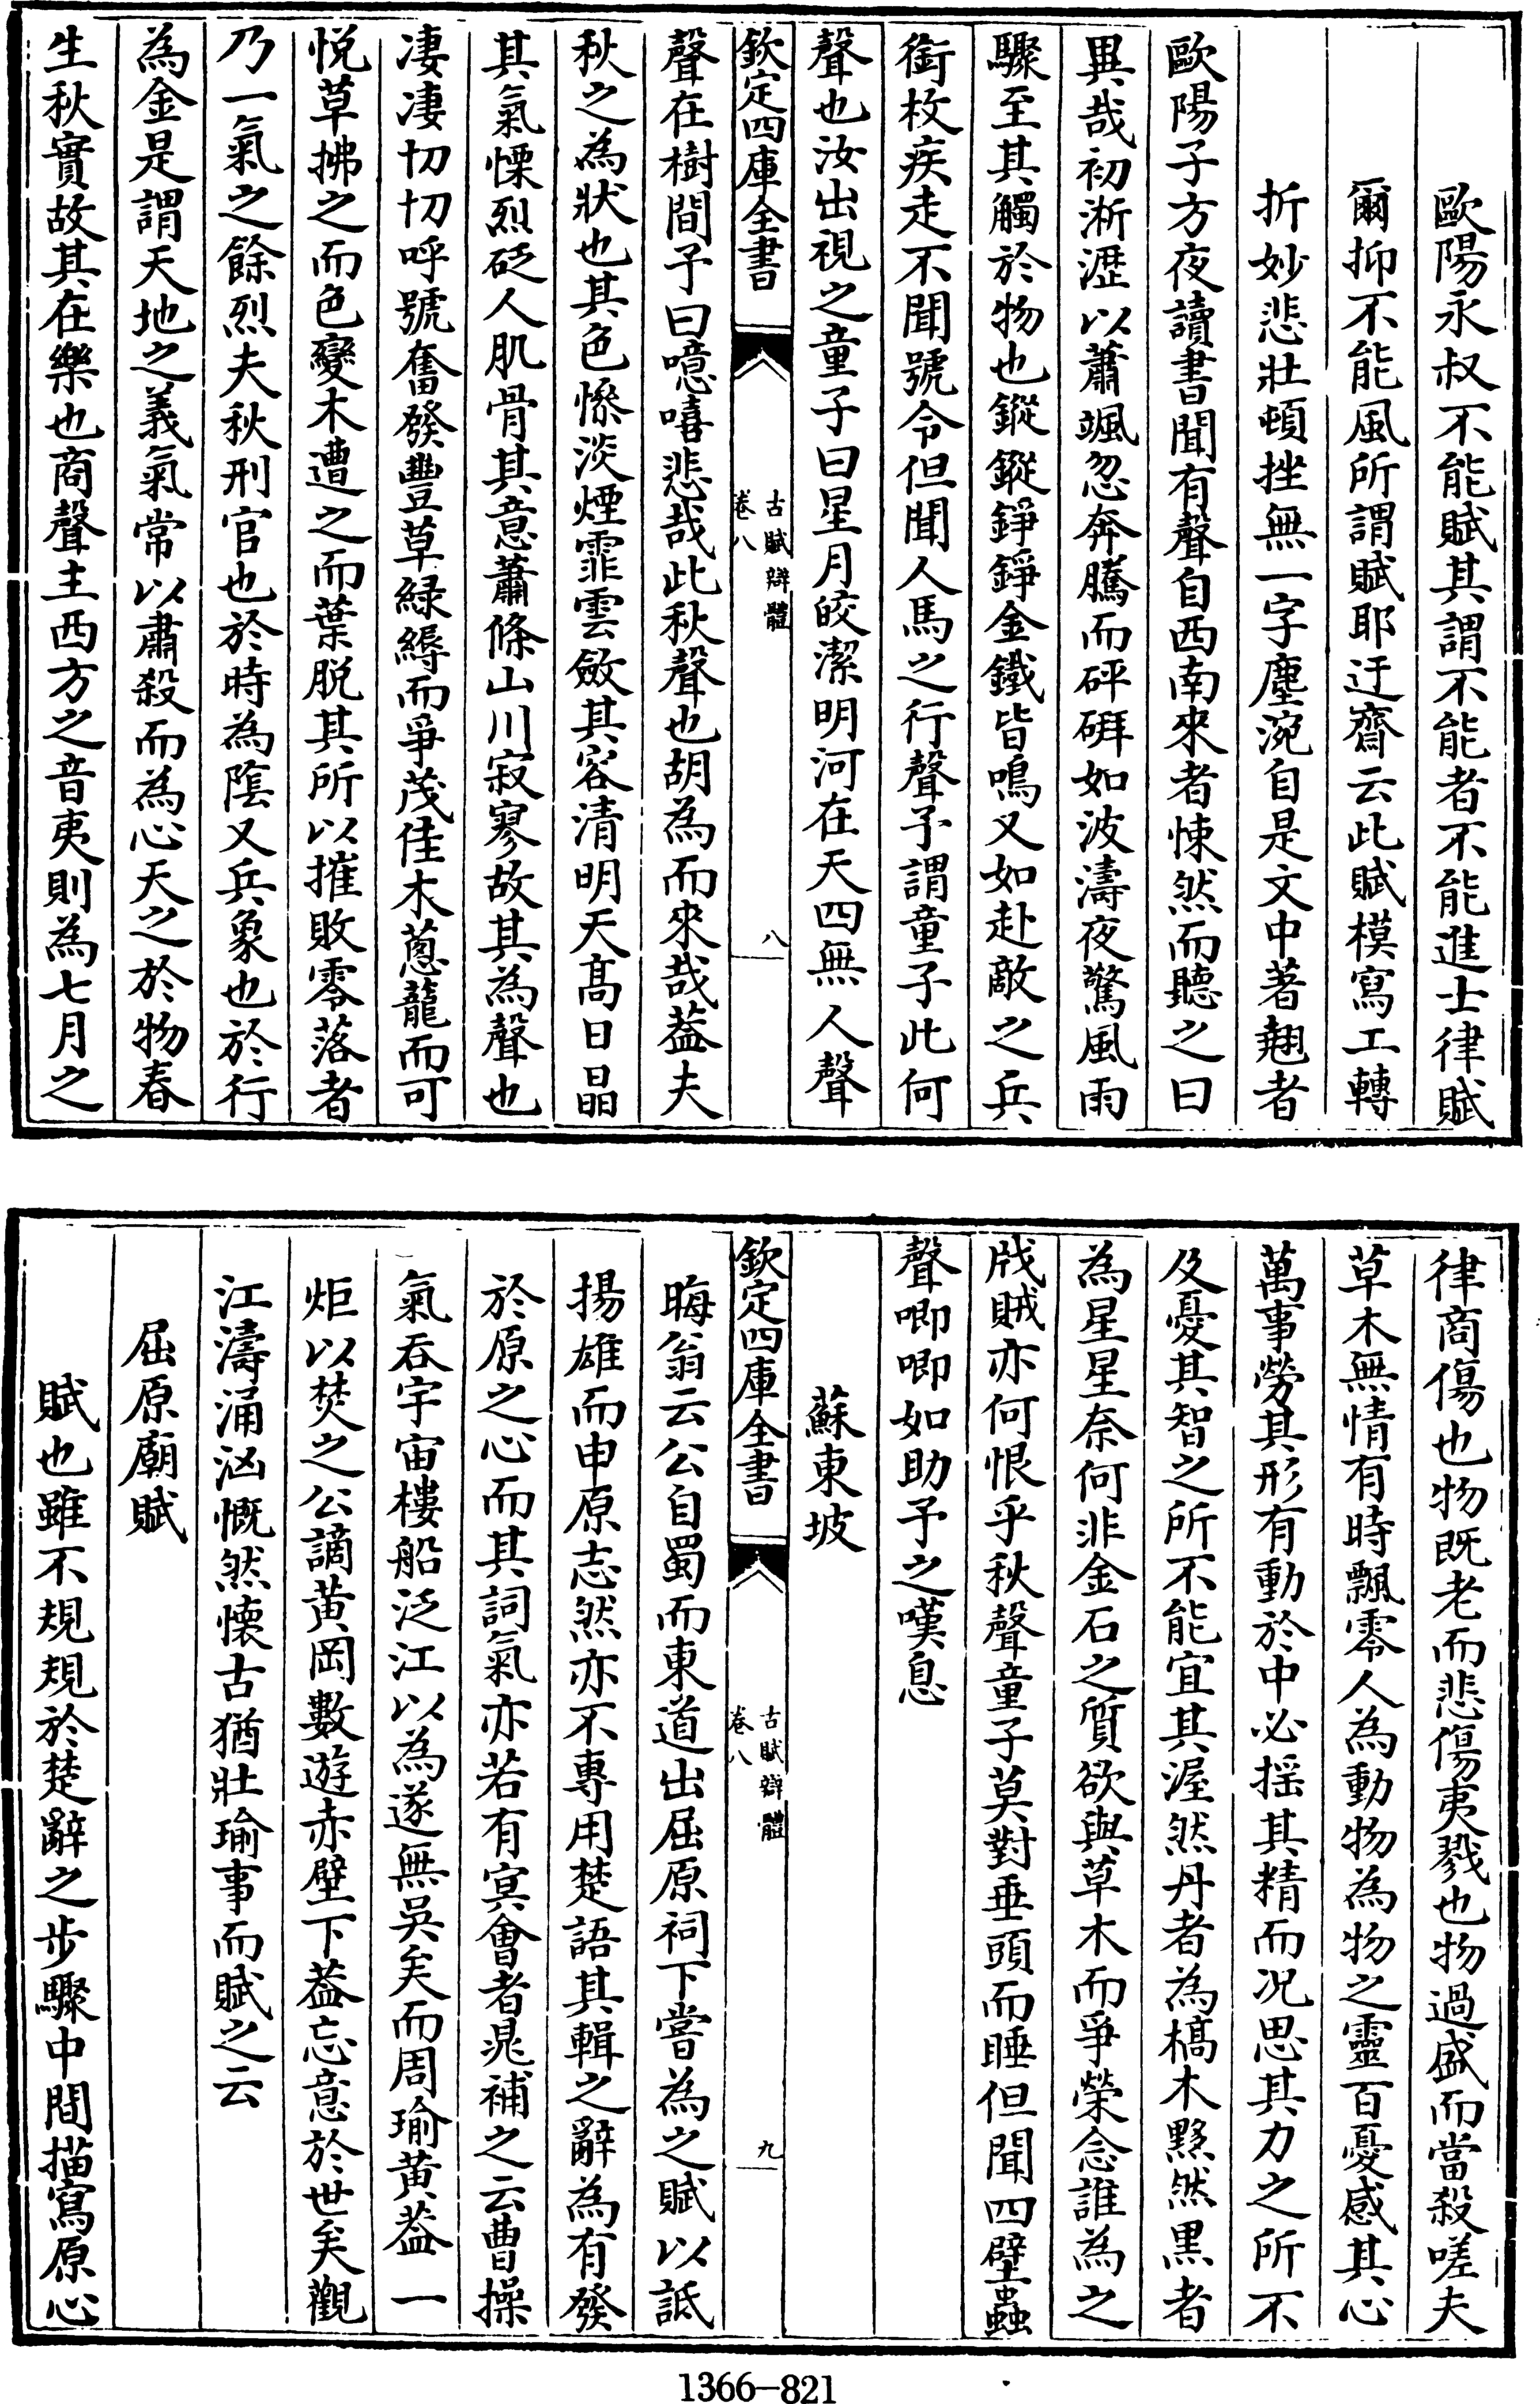 歐陽永叔不能賦其謂不能者不能進士律賦
爾抑不能風所謂賦耶迂齋云此賦模寫工轉
折妙悲壯頓挫無一字塵涴自是文中著翹者
歐陽子方夜讀書聞有聲自西南來者悚然而聽之曰
異哉初淅瀝以蕭颯忽奔騰而砰湃如波濤夜驚風雨
驟至其觸於物也鏦鏦錚錚金鐵皆鳴又如赴敵之兵
銜枚疾走不聞號令但聞人馬之行聲予謂童子此何
聲也汝出視之童子曰星月皎潔明河在天四無人聲
欽定四庫全書
古賦辯體
卷八
八
聲在樹間予曰噫嘻悲哉此秋聲也胡為而來哉葢夫
秋之為狀也其色慘淡煙霏雲斂其容清明天髙日晶
其氣慄烈砭人肌骨其意蕭條山川寂寥故其為聲也
凄凄切切呼號奮發豐草緑縟而爭茂佳木蔥蘢而可
悦草拂之而色變木遭之而葉脱其所以摧敗零落者
乃一氣之餘烈夫秋刑官也於時為隂又兵象也於行
為金是謂天地之義氣常以肅殺而為心天之於物春
生秋實故其在樂也商聲主西方之音夷則為七月之
律商傷也物既老而悲傷夷戮也物過盛而當殺嗟夫
草木無情有時飄零人為動物為物之靈百憂感其心
萬事勞其形有動於中必揺其精而况思其力之所不
及憂其智之所不能宜其渥然丹者為槁木黟然黒者
為星星奈何非金石之質欲與草木而爭榮念誰為之
戕賊亦何恨乎秋聲童子莫對垂頭而睡但聞四壁蟲
聲唧唧如助予之嘆息
蘇東坡
欽定四庫全書
古賦辯體
卷八
九
晦翁云公自蜀而東道出屈原祠下嘗為之賦以詆
揚雄而申原志然亦不專用楚語其輯之辭為有發
於原之心而其詞氣亦若有冥會者晁補之云曹操
氣吞宇宙樓船泛江以為遂無吳矣而周瑜黄葢一
炬以焚之公謫黄岡數遊赤壁下葢忘意於世矣觀
江濤涌洶慨然懐古猶壯瑜事而賦之云
屈原廟賦
賦也雖不規規於楚辭之步驟中間描寫原心
1366-821